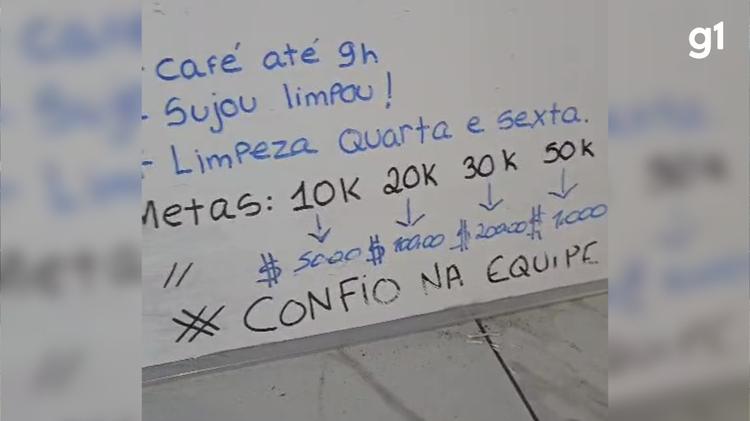 g1
- Café até 9h
- Sujou limpou!
- Limpeza Quarta e sexta.
Metas: 10K 20K 30K 50K
// $ $ $ $ 1.000
CONFIO NA EQUIPE